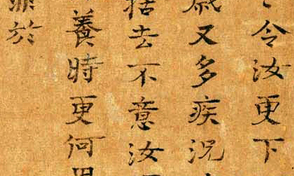 令汝更下
又多疾況
去不意汝
養時更何
於